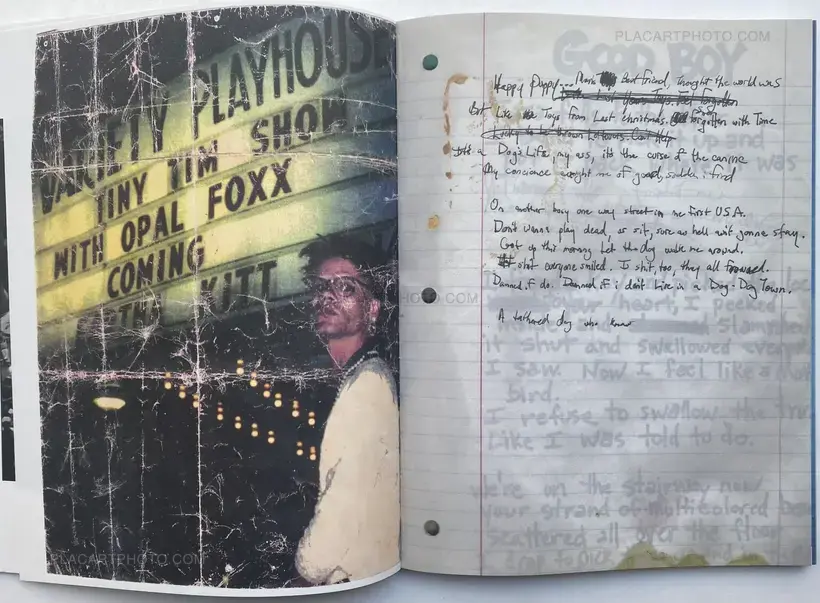 VARIETY PLAYHOUSE
TINY TIM SHOW
WITH OPAL FOXX
COMING
KITT
PLACARTPHOTO.COM
PLACARTPHOTO.COM
GOOD BOY
Happy Puppy... Best Friend, thought the world was
But Like Toys from Last christmas. forgotten with Time
a Dog's Life my ass, it's the curse of the canine
My concience caught me of good, sudden i find
On another busy one way street in me first USA.
Don't wanna play dead, or sit, sure as hell ain't gonna stay.
Got up this morning Let the dog walk me around.
shit everyone smiled. I shit, too, they all frowned.
Damned if do. Damned if i don't Live in a Dog-Dog Town.
A tethered dog who knew
heart, I peeked
it shut and swallowed
I saw. Now I feel like a
bird.
I refuse to swallow the
Like I was told to do.
We're on the stairway now
your strand of multicolored
scattered all over the floor